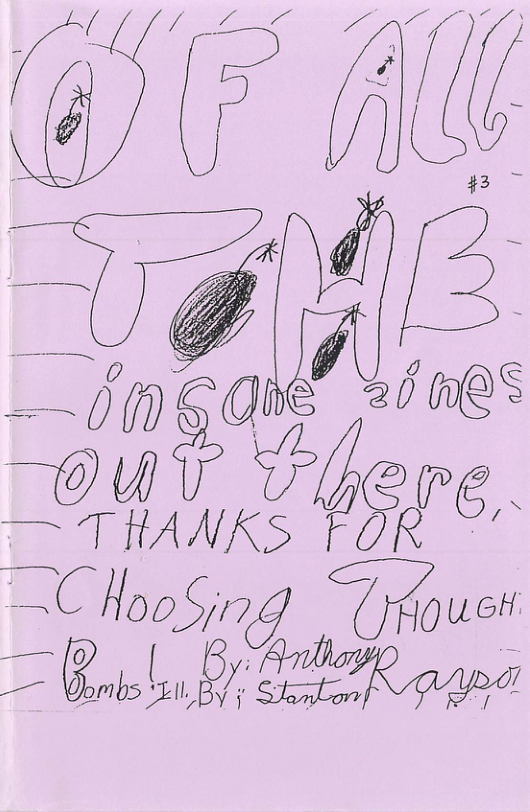 OF All
#3
THE
insane zines
out there,
THANKS FOR
CHOOSing THOUGH
Bombs! By: Anthony Rayso
Ill. By: Stanton